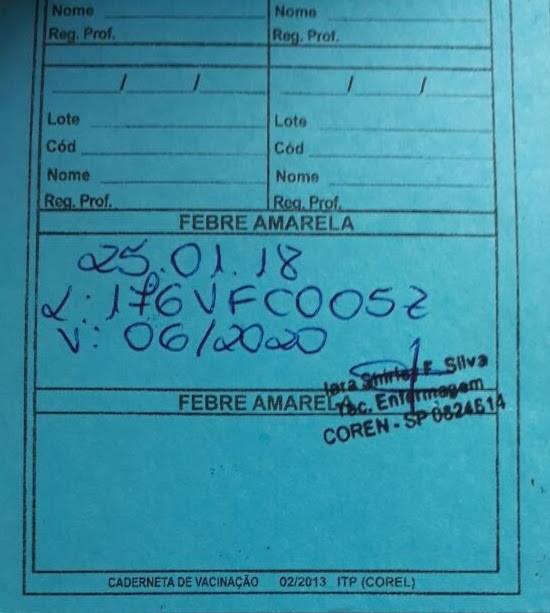 Nome Nome
Reg. Prof. Reg. Prof.
/ / / /
Lote Lote
Cód Cód
Nome Nome
Reg. Prof. Reg. Prof.
FEBRE AMARELA
25.01.18
L: 176VFC005Z
V: 06/2020
Iara Shirley F. Silva
FEBRE AMARELA Tec. Enfermagem
COREN - SP 0824614
CADERNETA DE VACINAÇÃO 02/2013 ITP (COREL)